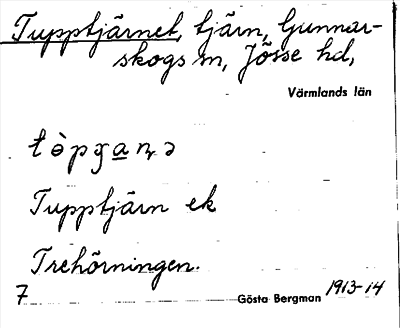 Tupptjärnet, tjärn, Gunnar-
skogs sn, Jösse hd,
Värmlands län
Tupptjärn ek
Trehörningen.
7 Gösta Bergman 1913-14